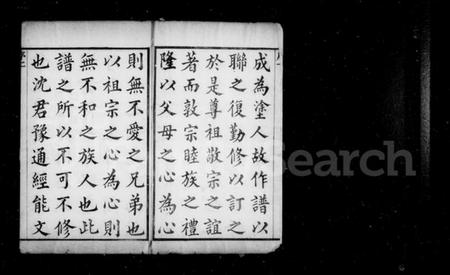 成為塗人故作譜以
聯之復勤修以訂之
於是尊祖敬宗之誼
著而敦宗睦族之禮
隆以父母之心為心
則無不愛之兄弟也
以祖宗之心為心則
無不和之族人也此
譜之所以不可不修
也沈君豫通經能文
Search